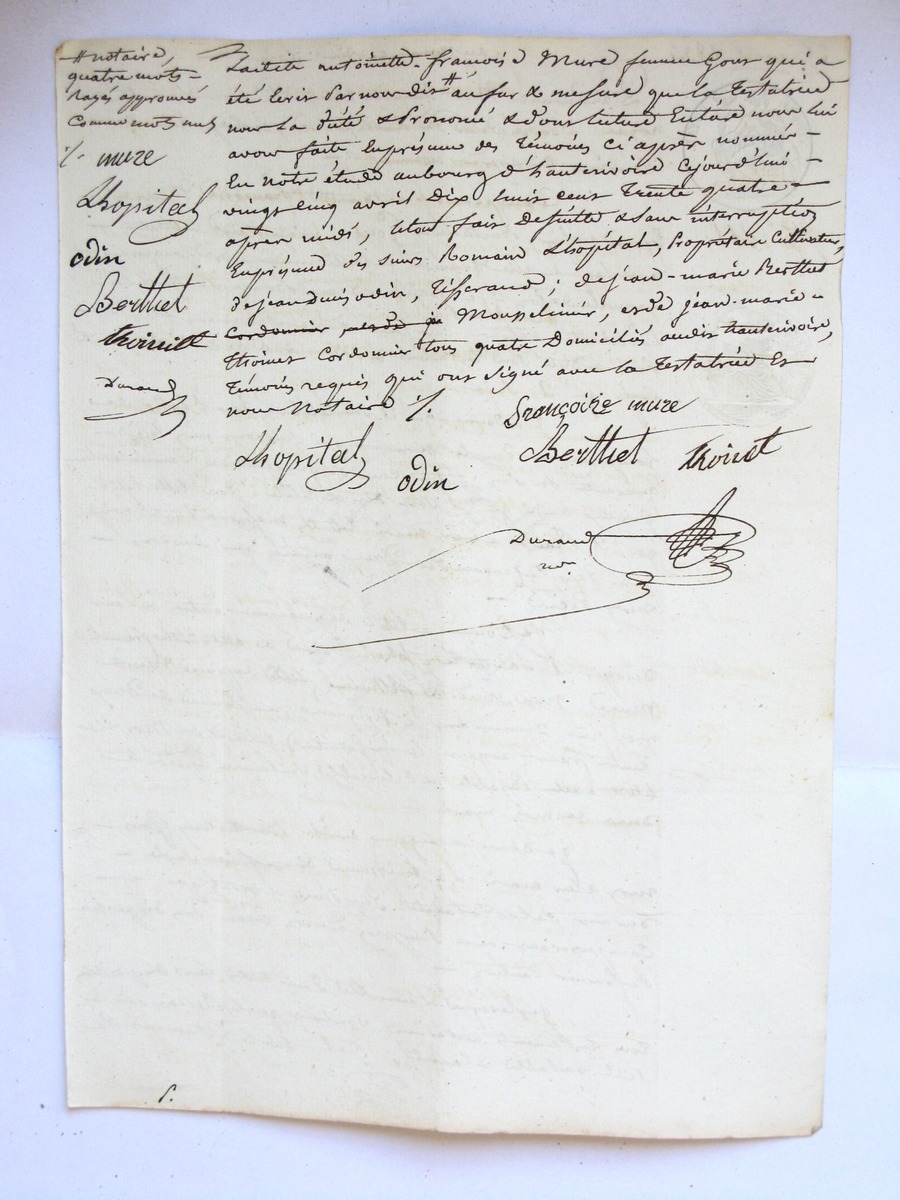 # notaire,
quatre mots
rayés approuvés
comme mots nuls
mure
Lhopital
odin
Berthet
thoinet
Durand
Ladite antoinette françoise Mure femme Gout qui a
été Ecrit Par nous dit # au fur & mesure que la Testatrice
nous la dicté & Prononcé & dont lecture Entière nous lui
avons faite En présence des Témoins ci après nommés
En notre étude au bourg d'hauterivoire Cejourd'hui
vingt cinq avril Dix huit cent Trente quatre
après midi, le tout fait De suite & sans interruption
En présence des sieurs Romain Lhopital, Propriétaire Cultivateur,
de jean Odin, Tisserand; de jean-marie Berthet
Cordonnier Mousselinier, et de jean-marie
thoinet Cordonnier tous quatre Domiciliés audit hauterivoire,
Témoins requis qui ont signé avec la Testatrice Et
nous Notaire ./.
françoise mure
Lhopital
odin
Berthet
thoinet
Durand
no.